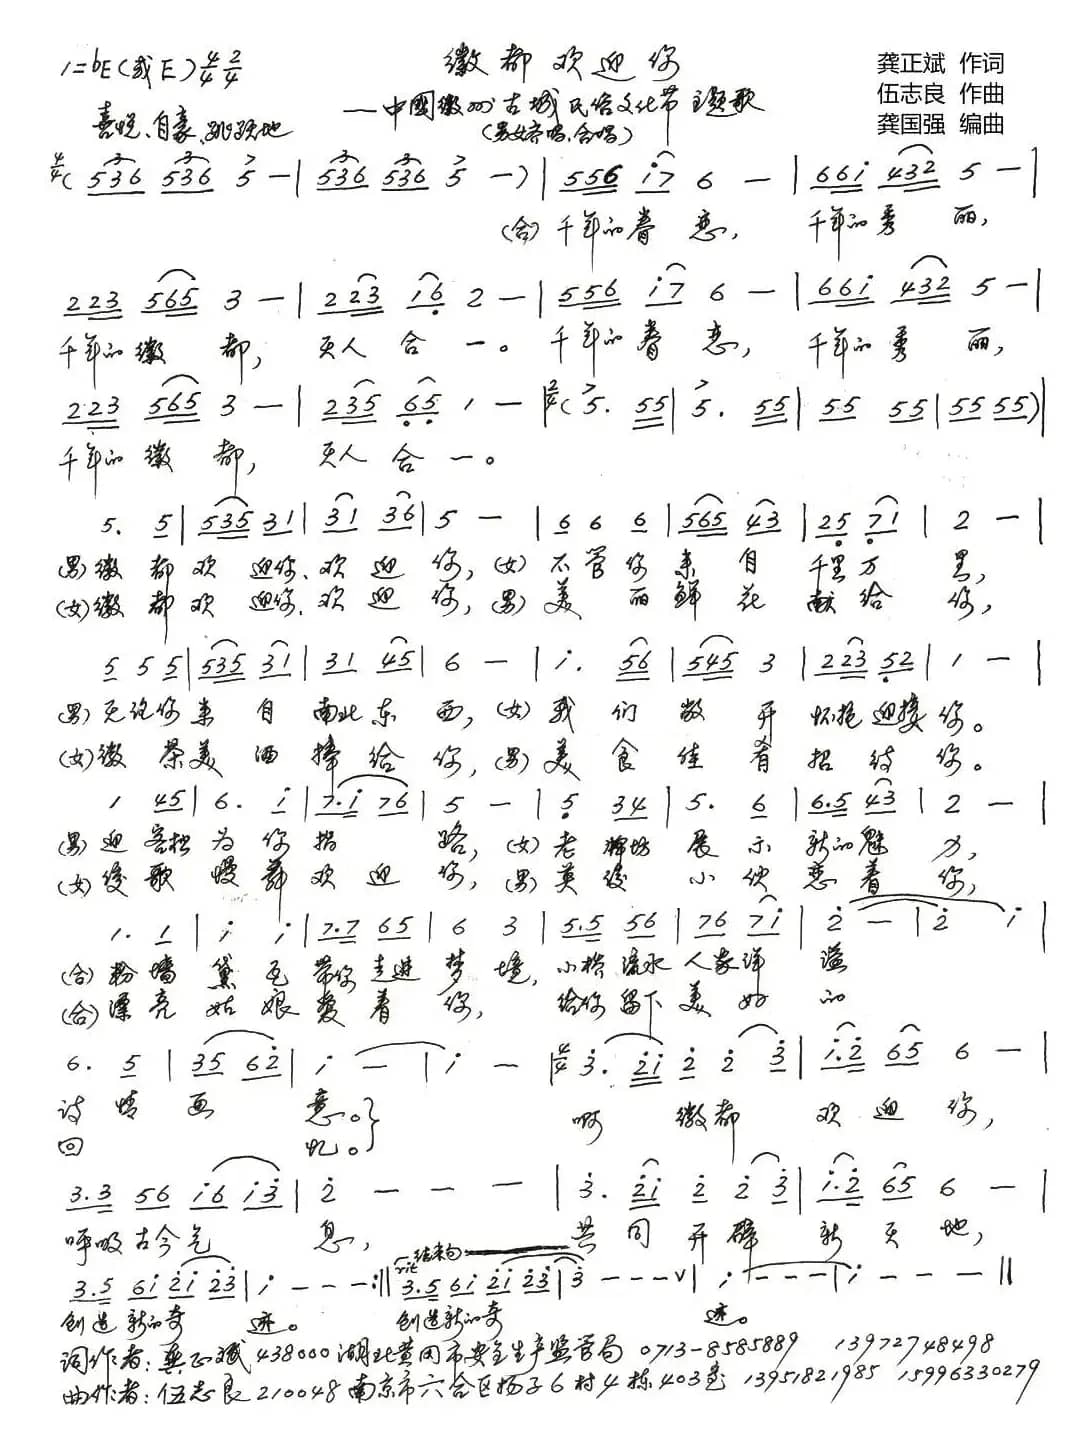 1=bE(或E) 4/4 2/4
徽都欢迎你
龚正斌 作词
——中國徽州古城民俗文化节主题歌
伍志良 作曲
喜悦、自豪、跳跃地
(男女齐唱、合唱)
龚国强 编曲
4/4 ( 536 536 5 — | 536 536 5 — ) | 556 i7 6 — | 66i 432 5 — |
(合) 千年的眷恋, 千年的秀丽,
223 565 3 — | 223 i6 2 — | 556 i7 6 — | 66i 432 5 — |
千年的徽都, 天人合一。千年的眷恋, 千年的秀丽,
223 565 3 — | 235 65 1 — | 2/4 ( 5. 55 | 5. 55 | 55 55 | 55 55 ) |
千年的徽都, 天人合一。
5. 5 | 535 31 | 31 36 | 5 — | 6 6 6 | 565 43 | 25 71 | 2 — |
(男)徽都欢迎你、欢迎你, (女)不管你来自千里万里,
(女)徽都欢迎你、欢迎你, (男)美丽鲜花献给你,
5 5 5 | 535 31 | 31 45 | 6 — | i. 56 | 545 3 | 223 52 | 1 — |
(男)无论你来自南北东西, (女)我们敞开怀抱迎接你。
(女)徽茶美酒捧给你, (男)美食佳肴招待你。
1 45 | 6. i | 7.i 76 | 5 — | 5 34 | 5. 6 | 6.5 43 | 2 — |
(男)迎客松为你指路, (女)老牌坊展示新的魅力,
(女)缓歌慢舞欢迎你, (男)英俊小伙恋着你,
1. 1 | i i | 7.7 65 | 6 3 | 5.5 56 | 76 7i | 2 — | 2 i |
(合)粉墙黛瓦带你走进梦境, 小桥流水人家洋溢
(合)漂亮姑娘爱着你, 给你留下美好的
6. 5 | 35 62 | i — | i — | 4/4 3. 2i 2 2 3 | i.2 65 6 — |
诗情画意。} 啊徽都欢迎你,
回忆。}
3.3 56 i6 i3 | 2 — — — | 3. 2i 2 2 3 | i.2 65 6 — |
呼吸古今气息, 共同开辟新天地,
rit 结束句
3.5 6i 2i 23 | i — — — :|| 3.5 6i 2i 23 | 3 — — — v | i — — — | i — — — ||
创造新的奇迹。 创造新的奇迹。
词作者:龚正斌 438000 湖北黄冈市安全生产监管局 0713-8585889 13972748498
曲作者:伍志良 210048 南京市六合区扬子6村4栋403室 13951821985 15996330279